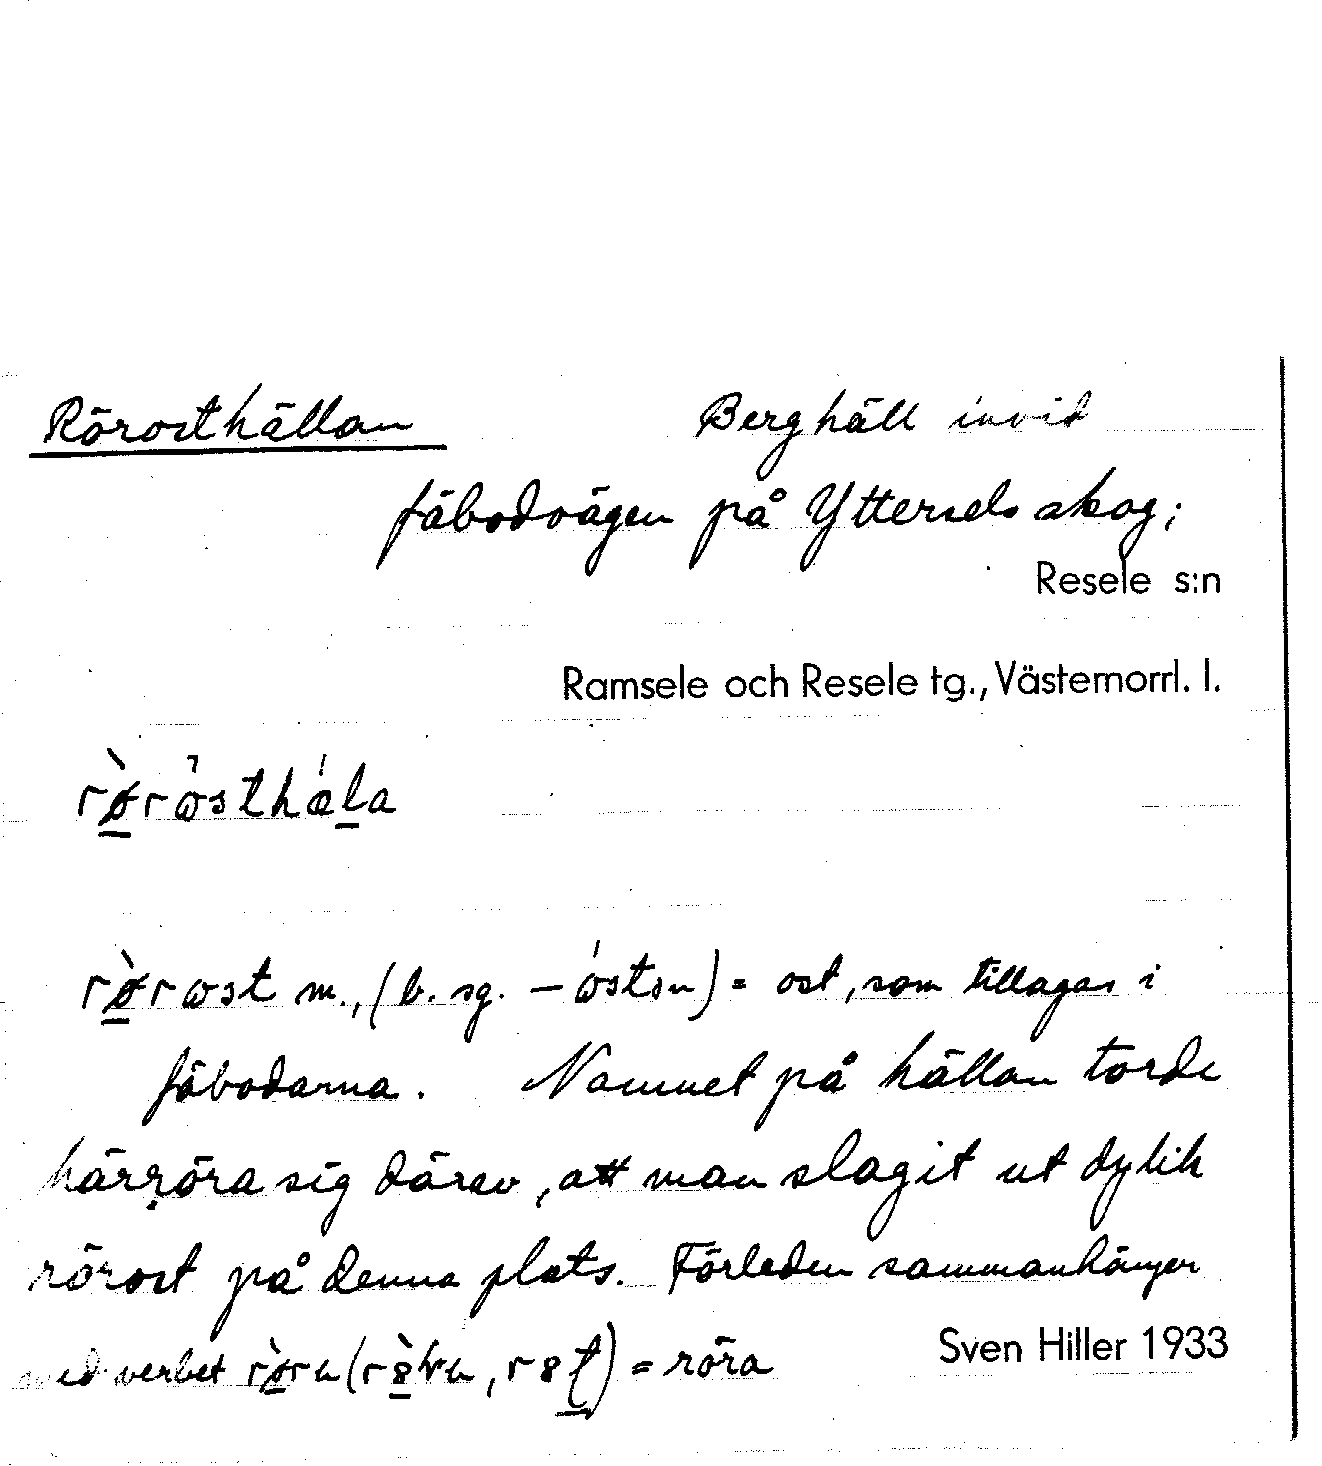 Rörosthällan Berghäll invid
fäbodvägen på Ytterselsskog;
Resele s:n
Ramsele och Resele tg., Västernorrl. l.
rø̀rɷ́sthǽla
rø̀rɷst m., (b. sg. – ɷ́stən) = ost, som tillagas i
fäbodarna. Namnet på hällan torde
härröra sig därav, att man slagit ut dylik
rörost på denna plats. Förleden sammanhänger
med verbet = röra
Sven Hiller 1933